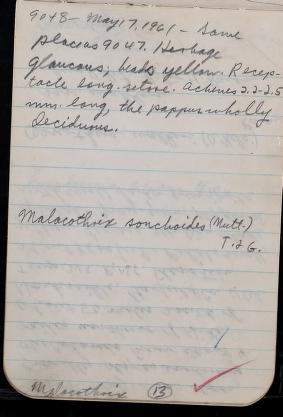 9048 - May 17, 1961 - Same
place as 9047. Herbage
glaucous; heads yellow. Recep-
tacle long-setose. Achenes 2.2-2.5
mm. long, the pappus wholly
deciduous.
Malacothrix sonchoides (Nutt.)
T. & G.
Malacothrix 13